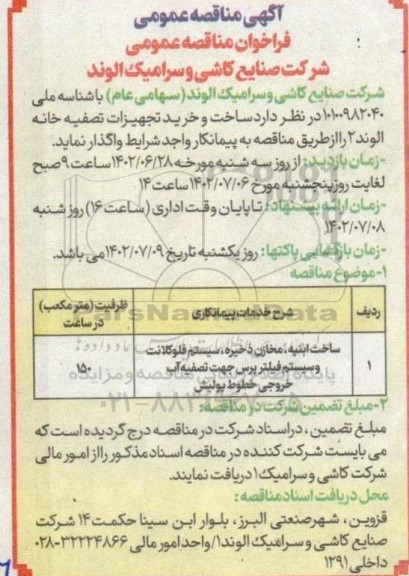 آگهی مناقصه عمومی
فراخوان مناقصه عمومی
شرکت صنایع کاشی و سرامیک الوند
شرکت صنایع کاشی و سرامیک الوند (سهامی عام) با شناسه ملی
۱۰۱۰۰۹۸۲۰۴۰ در نظر دارد ساخت و خرید تجهیزات تصفیه خانه
الوند ۲ را از طریق مناقصه به پیمانکار واجد شرایط واگذار نماید.
-زمان بازدید: از روز سه شنبه مورخه ۱۴۰۲/۰۶/۲۸ ساعت ۹ صبح
لغایت روز پنجشنبه مورخ ۱۴۰۲/۰۷/۰۶ ساعت ۱۴
-زمان ارائه پیشنهاد: تا پایان وقت اداری (ساعت ۱۶) روز شنبه
۱۴۰۲/۰۷/۰۸
-زمان بازگشایی پاکتها: روز یکشنبه تاریخ ۱۴۰۲/۰۷/۰۹ می باشد.
۱-موضوع مناقصه
ردیف شرح خدمات پیمانکاری ظرفیت (متر مکعب) در ساعت
۱ ساخت ابنیه، مخازن ذخیره، سیستم فلوکلانت
و سیستم فیلتر پرس جهت تصفیه آب ۱۵۰
خروجی خطوط پولیش
۲-مبلغ تضمین شرکت در مناقصه:
مبلغ تضمین، در اسناد شرکت در مناقصه درج گردیده است که
می بایست شرکت کننده در مناقصه اسناد مذکور را از امور مالی
شرکت کاشی و سرامیک ۱ دریافت نمایند.
محل دریافت اسناد مناقصه:
قزوین، شهر صنعتی البرز، بلوار ابن سینا حکمت ۱۴ شرکت
صنایع کاشی و سرامیک الوند ۱/ واحد امور مالی ۳۲۲۲۴۸۶۶-۰۲۸
داخلی ۱۲۹۱